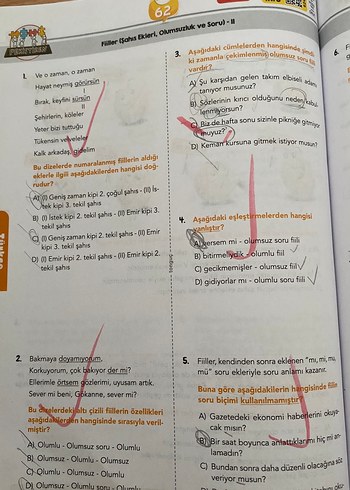 62
Fiiller (Şahıs Ekleri, Olumsuzluk ve Soru) - II
1. Ve o zaman, o zaman
Hayat neymiş görürsün
I
Bırak, keyfini sürsün
II
Şehirlerin, köleler
Yeter bizi tuttuğu
Tükensin velveleler
Kalk arkadaş, gidelim
Bu dizelerde numaralanmış fiillerin aldığı
eklerle ilgili aşağıdakilerden hangisi doğ-
rudur?
A) (I) Geniş zaman kipi 2. çoğul şahıs - (II) İs-
tek kipi 3. tekil şahıs
B) (I) İstek kipi 2. tekil şahıs - (II) Emir kipi 3.
tekil şahıs
C) (I) Geniş zaman kipi 2. tekil şahıs - (II) Emir
kipi 3. tekil şahıs
D) (I) Emir kipi 2. tekil şahıs - (II) Emir kipi 2.
tekil şahıs
2. Bakmaya doyamıyorum,
Korkuyorum, çok bakıyor der mi?
Ellerimle örtsem gözlerimi, uyusam artık.
Sever mi beni, Gökanne, sever mi?
Bu dizelerdeki altı çizili fiillerin özellikleri
aşağıdakilerin hangisinde sırasıyla veril-
miştir?
A) Olumlu - Olumsuz soru - Olumlu
B) Olumsuz - Olumlu - Olumsuz
C) Olumlu - Olumsuz - Olumlu
D) Olumsuz - Olumlu soru - Olumlu
3. Aşağıdaki cümlelerden hangisinde şimdi-
ki zamanla çekimlenmiş olumsuz soru fiili
vardır?
A) Şu karşıdan gelen takım elbiseli adamı
tanıyor musunuz?
B) Sözlerinin kırıcı olduğunu neden kabul-
lenmiyorsun?
C) Biz de hafta sonu sizinle pikniğe gitmiyor
muyuz?
D) Keman kursuna gitmek istiyor musun?
4. Aşağıdaki eşleştirmelerden hangisi
yanlıştır?
A) versem mi - olumsuz soru fiili
B) bitirmeliydik - olumlu fiil
C) gecikmemişler - olumsuz fiil
D) gidiyorlar mı - olumlu soru fiili
5. Fiiller, kendinden sonra eklenen "mı, mi, mu,
mü" soru ekleriyle soru anlamı kazanır.
Buna göre aşağıdakilerin hangisinde fiilin
soru biçimi kullanılmamıştır?
A) Gazetedeki ekonomi haberlerini okuya-
cak mısın?
B) Bir saat boyunca anlattıklarımı hiç mi an-
lamadın?
C) Bundan sonra daha düzenli olacağına söz
veriyor musun?
6.